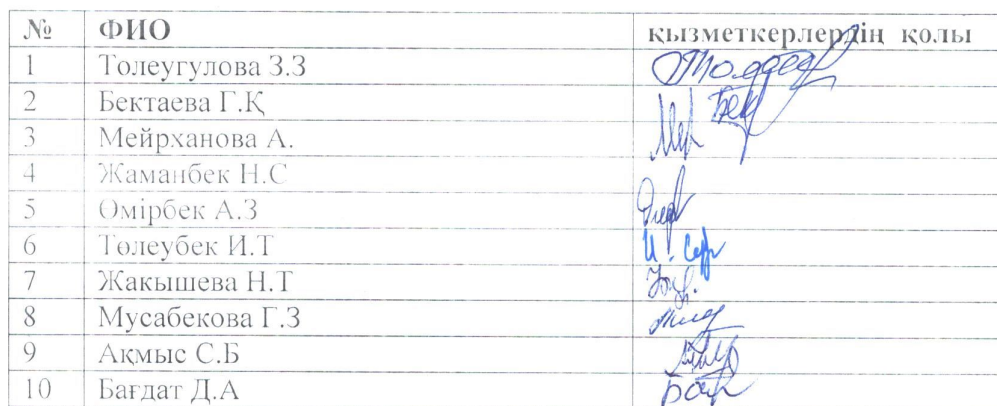 № ФИО қызметкерлердің қолы
1 Толеугулова З.З
2 Бектаева Г.Қ Бек
3 Мейрханова А.
4 Жаманбек Н.С
5 Өмірбек А.З
6 Төлеубек И.Т
7 Жакышева Н.Т
8 Мусабекова Г.З
9 Ақмыс С.Б
10 Бағдат Д.А